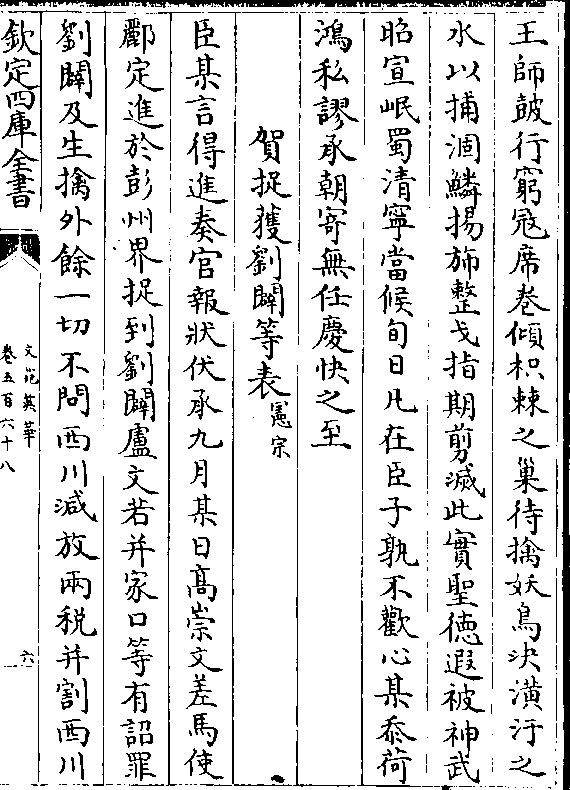 王師鼓行窮冦席卷傾枳棘之巢待擒妖鳥決潢汙之
水以捕涸鱗揚斾整戈指期剪滅此實聖徳遐被神武
昭宣岷蜀清寧當候旬日凡在臣子孰不歡心某忝荷
鴻私謬承朝寄無任慶快之至
賀捉獲劉闢等表憲宗
臣某言得進奏官報狀伏承九月某日髙崇文差馬使
酈定進於彭州界捉到劉闢盧文若并家口等有詔罪
劉闢及生擒外餘一切不問西川減放兩税并割西川
欽定四庫全書
文苑英華
卷五百六十八
六